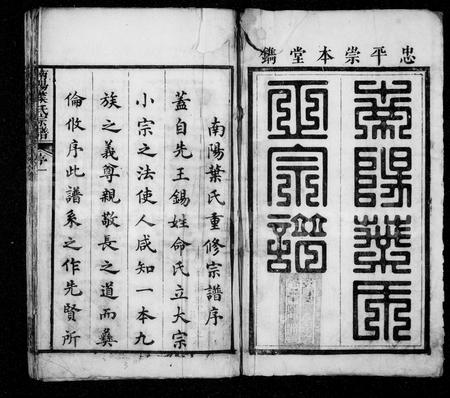 忠平崇本堂鐫
南陽葉氏
宗譜
南陽葉重修宗譜序
蓋自先王錫姓命氏立大宗
小宗之法使人咸知一本九
族之義尊親敬長之道而彝
倫攸序此譜系之作先賢所
南陽葉氏宗譜
序一